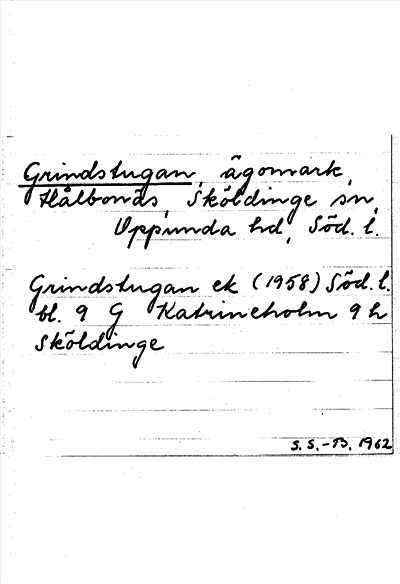 Grindstugan, ägomark,
Hålbonäs, Sköldinge sn,
Oppunda hd, Söd. l.
Grindstugan ek (1958) Söd. l.
bl. 9 G Katrineholm 9 h
Sköldinge
S. S. - B. 1962